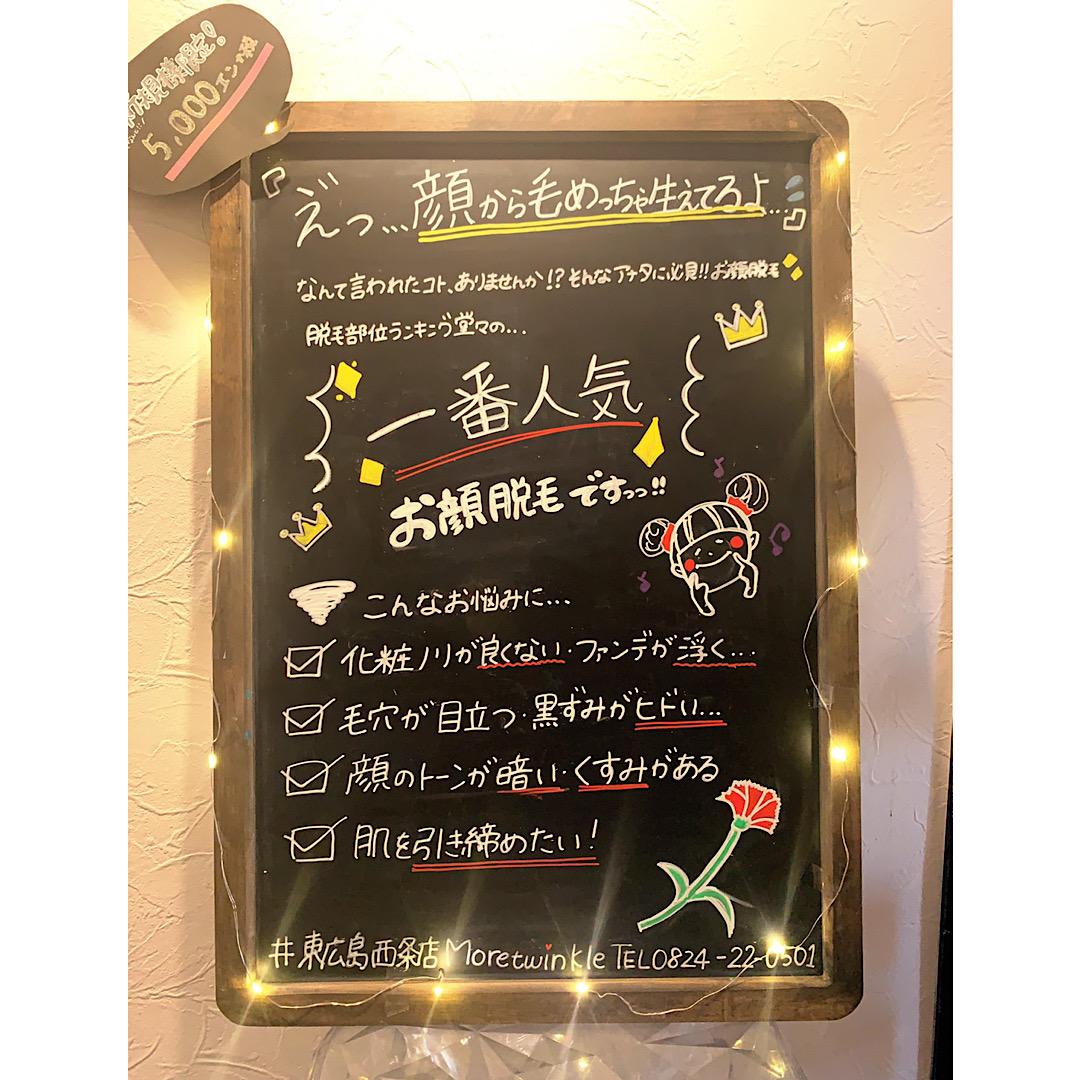 新規様限定!
5,000エン+税
『えっ...顔から毛めっちゃ生えてるよ...』
なんて言われたコト、ありませんか!? そんなアナタに必見!! お顔脱毛
脱毛部位ランキング堂々の...
一番人気
お顔脱毛ですっっ!!
こんなお悩みに...
化粧ノリが良くない・ファンデが浮く...
毛穴が目立つ・黒ずみがヒドい...
顔のトーンが暗い・くすみがある
肌を引き締めたい!
#東広島西条店 Moretwinkle TEL0824-22-0501